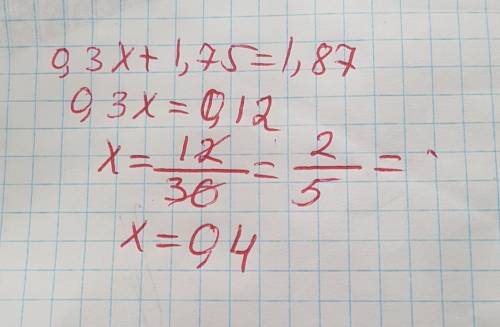 0,3x+1,75=1,87
0,3x=0,12
x=12/30=2/5=
x=0,4